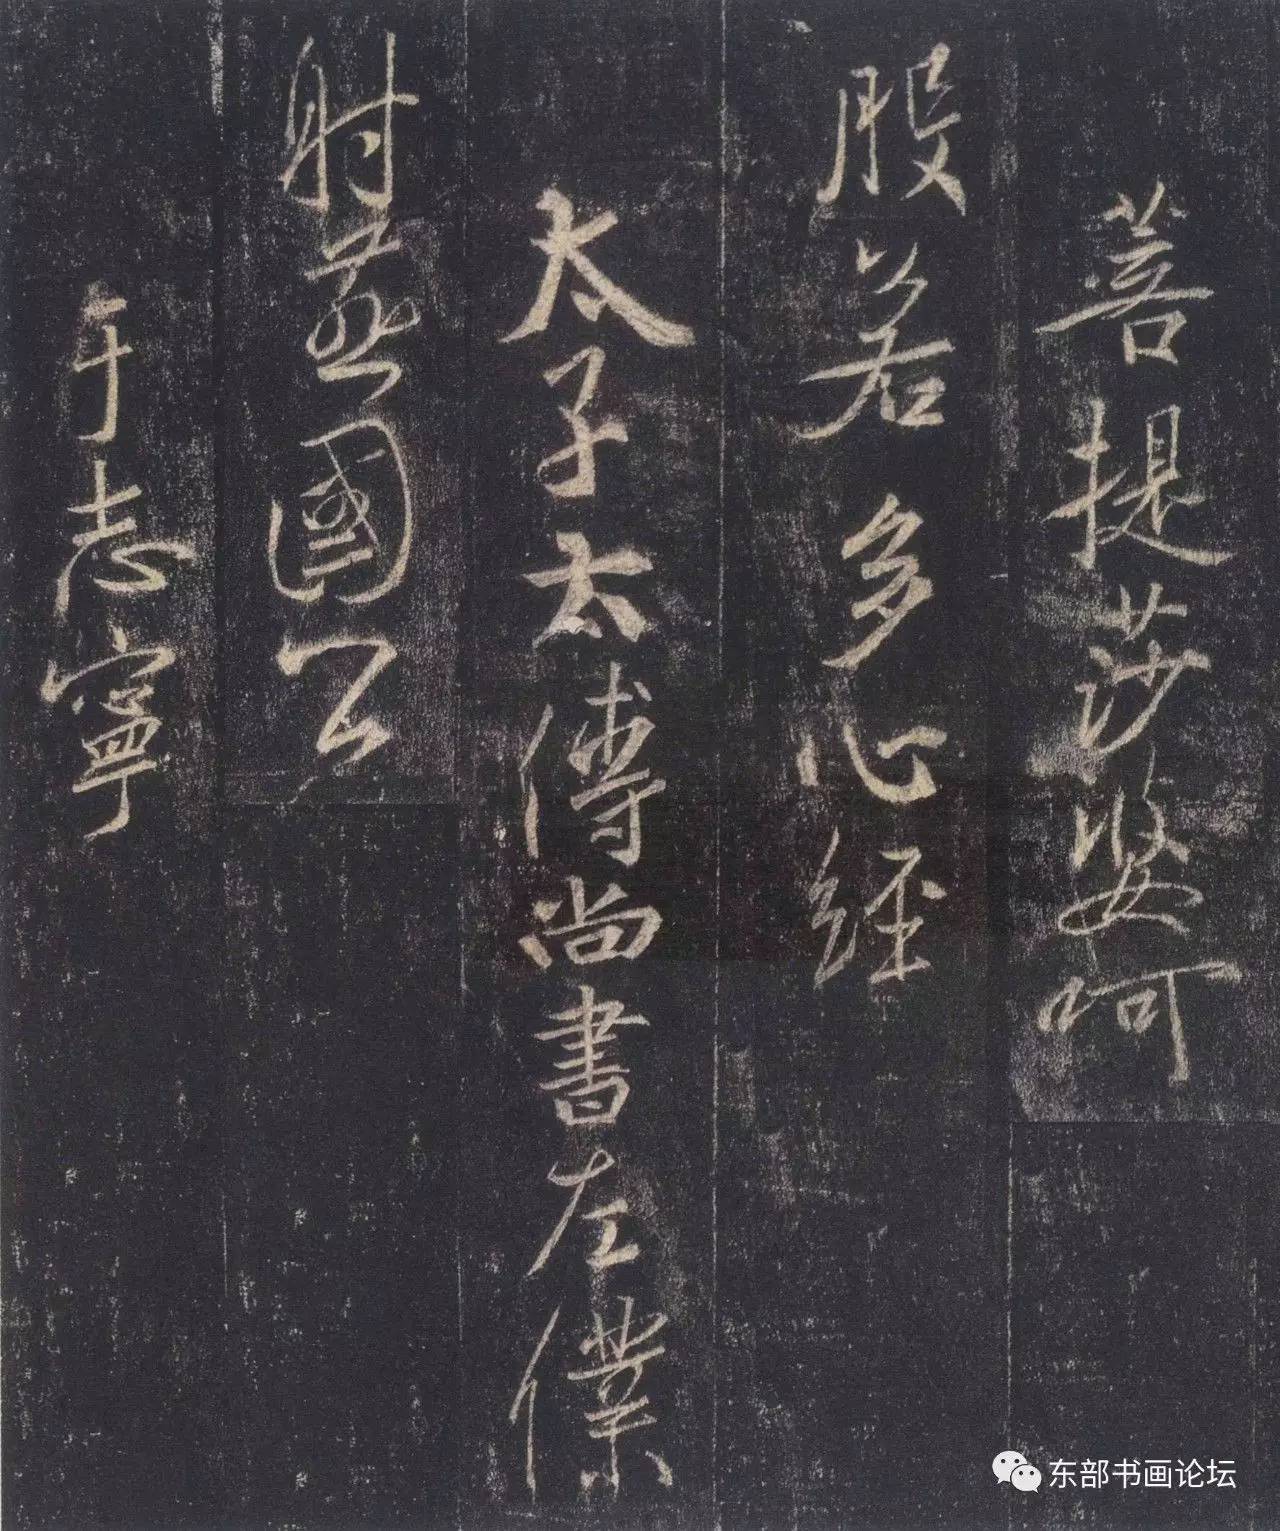 菩提莎婆呵
般若多心經
太子太傅尚書左僕
射燕國公
于志寧
东部书画论坛